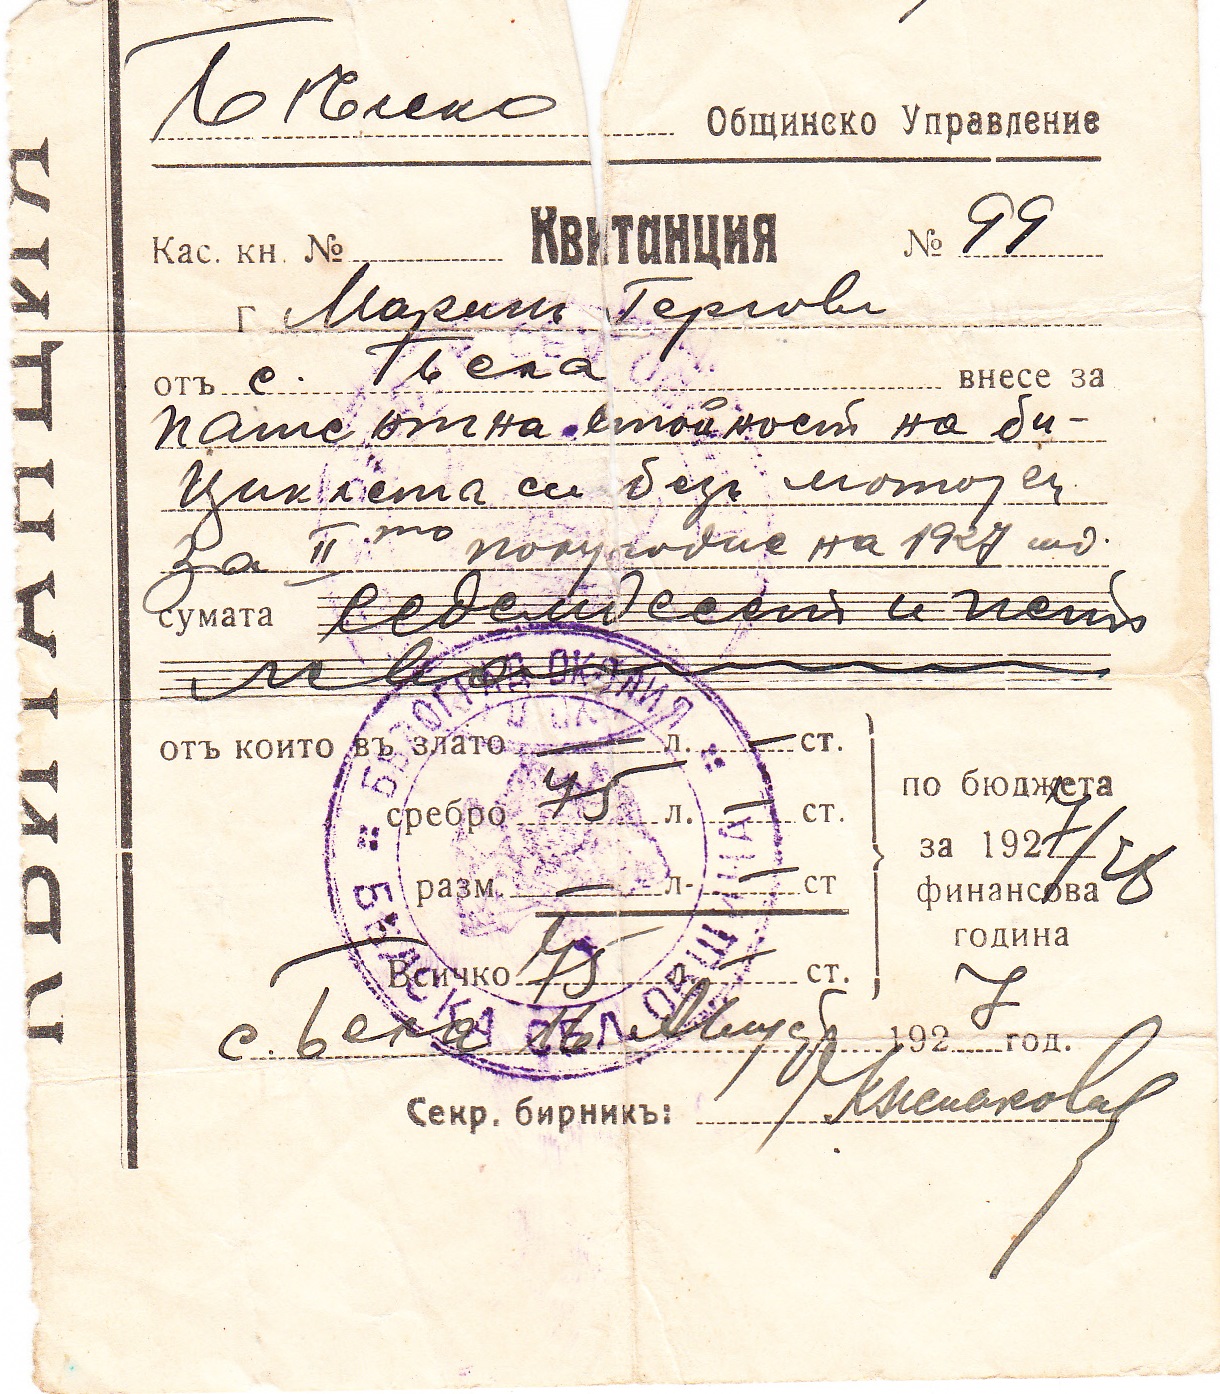 КВИТАНЦИЯ
Общинско Управление
Кас. кн. № Квитанция № 99
Г Маринъ Герговъ
отъ с. Бѣла внесе за
патентна стойность на би-
циклета си безъ моторец
за II то полугодие на 1927 год.
сумата седемдесетъ и петь
лева
отъ които въ злато — л. — ст.
сребро 75 л. — ст.
разм. — л- — ст
Всичко 75 — ст.
по бюджета
за 1927/28
финансова
година
с. Бела 1927 год.
Секр. бирникъ:
БѢЛОГРАД ОКОЛИЯ
СЕЛ. ОБЩИНА